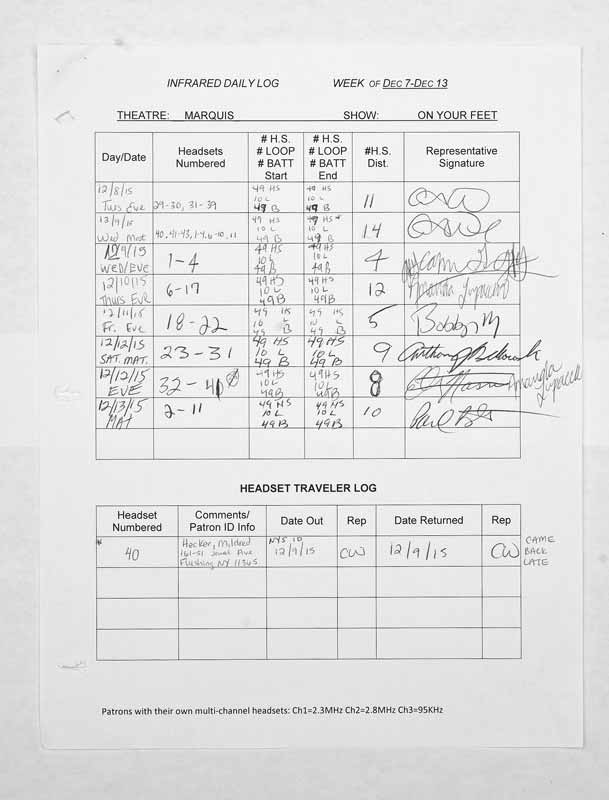 INFRARED DAILY LOG WEEK OF DEC 7-DEC 13
THEATRE: MARQUIS SHOW: ON YOUR FEET
Day/Date
Headsets
Numbered
# H.S.
# LOOP
# BATT
Start
# H.S.
# LOOP
# BATT
End
#H.S.
Dist.
Representative
Signature
12/8/15
Tues Eve
29-30, 31-39
49 HS
10 L
49 B
49 HS
10 L
49 B
11
12/9/15
Wed Mat
40, 41-43, 1-4, 6-10, 11
49 HS
10 L
49 B
49 HS*
10 L
49 B
14
12/9/15
WED/EVE
1-4
49 HS
10L
49 B
49 HS
10L
49 B
4
12/10/15
THURS EVE
6-17
49 HS
10 L
49B
49 HS
10 L
49B
12
12/11/15
Fr. Eve
18-22
49 HS
10 L
49 B
49 HS
10 L
49 B
5
Bobby M
12/12/15
SAT. MAT.
23-31
49 HS
10 L
49 B
49 HS
10 L
49 B
9
Anthony
12/12/15
EVE
32-40
49HS
10L
49B
49HS
10L
49B
8
12/13/15
MAT
2-11
49 HS
10 L
49 B
49 HS
10 L
49 B
10
Paul
HEADSET TRAVELER LOG
Headset
Numbered
Comments/
Patron ID Info
Date Out
Rep
Date Returned
Rep
*
40
Hecker, Mildred
161-51 Jewel Ave
Flushing NY 11365
NYS ID
12/9/15
CW
12/9/15
CW
CAME
BACK
LATE
Patrons with their own multi-channel headsets: Ch1=2.3MHz Ch2=2.8MHz Ch3=95KHz